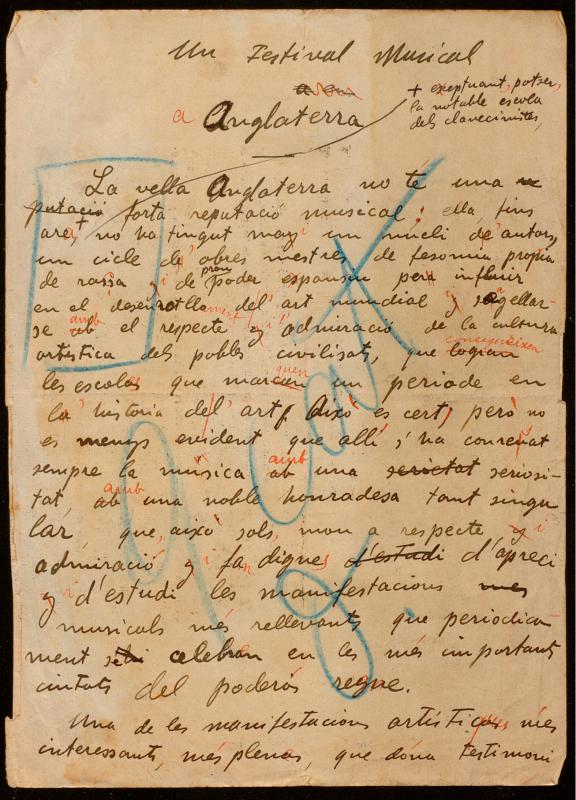 Un Festival Musical
a Anglaterra
+ exeptuant, potser,
la notable escola
dels clavecinistes,
La vella Anglaterra no té una
putació forta reputació musical; ella, fins
ara, + no ha tingut may un nucli de autors,
un cicle de obres mestres de fesomia propia
de rassa y de prou poder espansiu per a influir
en el desenrotllament del art mundial y sagellar-
se ab amb el respecte y l'admiració de la cultura
artistica dels pobles civilisats, que logran consegueixen
les escolas que marcan quen un periode en
la historia del art. Aixó es cert, però no
es menys evident que allí s'ha conreuat
sempre la música ab amb una serietat seriosi-
tat, ab amb una noble honradesa tant singu
lar, que, aixó sols, mou a respecte y i
admiració y i fa dignes d'estudi d'apreci
y i d'estudi les manifestacions mes
musicals més rellevants que periodica-
ment se celebran en les més importants
ciutats del poderós regne.
Una de les manifestacions artísticas ques més
interessants, més plenas, que dóna testimoni